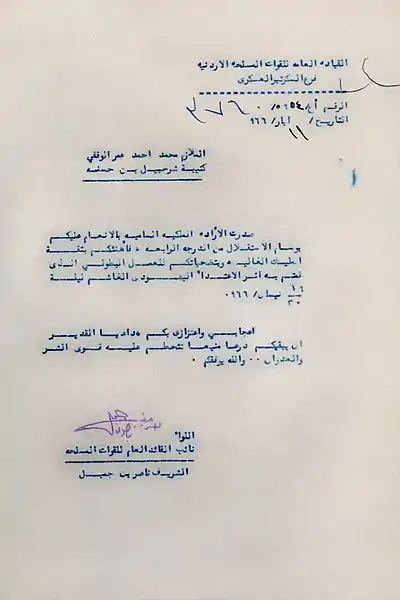 القياده العامه للقوات المسلحه الاردنيه
فرع السكرتير العسكرى
الرقم أع/٥٤/٥٦ ٣٧٦٠
التاريخ/ ١١ ايار/ ٩٦٦
الملازم محمد احمد عمر الوقفي
كتيبة شرحبيل بن حسنه
صدرت الأراده الملكيه الساميه بالانعام عليكم
بوسام الاستقلال من الدرجه الرابعه ، فاهنئكم بثقة
المليك الغاليه ، وبتضحياتكم للعمل البطولي الذى
قمتم به أثر الاعتداء اليهودى الغاشم ليلة
نيسان/ ٩٦٦
اعجابي واعتزازى بكم ، داعيا القدير
ان يبقيكم درعا منيعا تتحطم عليه قوى الشر
والعدوان ٠٠ والله يوفقكم ٠
اللواء
نائب القائد العام للقوات المسلحه
الشريف ناصر بن جميل